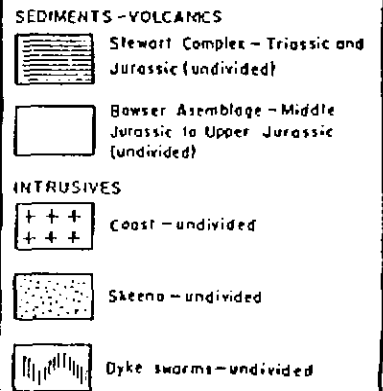 SEDIMENTS-VOLCANICS
Stewart Complex-Triassic and
Jurassic (undivided)
Bowser Asemblage-Middle
Jurassic to Upper Jurassic
(undivided)
INTRUSIVES
Coast-undivided
Skeena-undivided
Dyke swarms-undivided